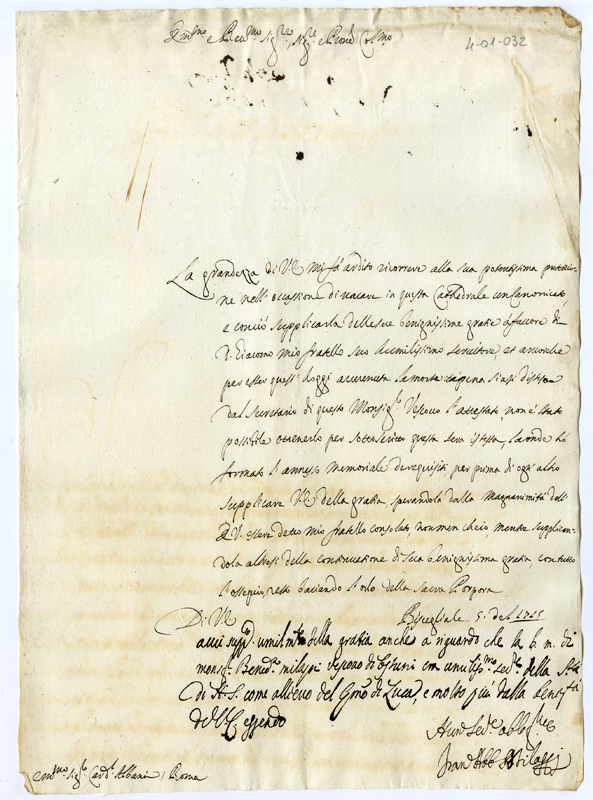 Em.mo e Rev.mo Sig.re, Sig.re e P.rone Col.mo
4-01-032
La grandezza di V.E. mi fà ardito ricorrere alla sua potentissima protettio-
ne nell' occassione di vacare in questa Cathedrale un Canonicato,
e con ciò supplicarla delle sue benignissime gratie à favore di
D. Giacomo mio fratello suo humilissimo servitore, et ancorche
per esser quest' hoggi accurata la morte à pena si asi
dal Secretario di questo Monsig.r Vescovo l' attestato, non è stato
possibile ottenerlo per questa sera istessa, laonde hò
formato l' annesso Memoriale de requisiti, per prima di ogn' altro
supplicare V.E. della gratia, sperandola dalla magnanimità dell'
E.V. esser detto mio fratello consolato, non men che io, mentre supplican-
dola altresi della continuatione di Sua benignissima gratia, con tutto
l' ossequio, resto baciando l' orlo della Sacra Porpora
Di V.E. Bisceglia le 5. del 1715
avui supp.o umilm.te della gratia anche a riguardo che la b. m. di
monsig.r Bened.o milazzi vescovo di Ostuni era sed.e della S.tà
di N.S. come allievo del de Luca, e molto più dalla
dell' V.E. essendo
Hum.o Se.re obblig.mo
Fran.co Abb. Milazzi
em.mo Sig.r Card. Albani / Roma